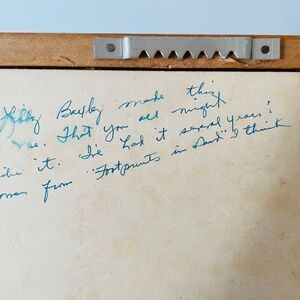 Libby Baxley made this
me. That you all might
like it. I've had it several years!
from "Footprints in Sand" I think